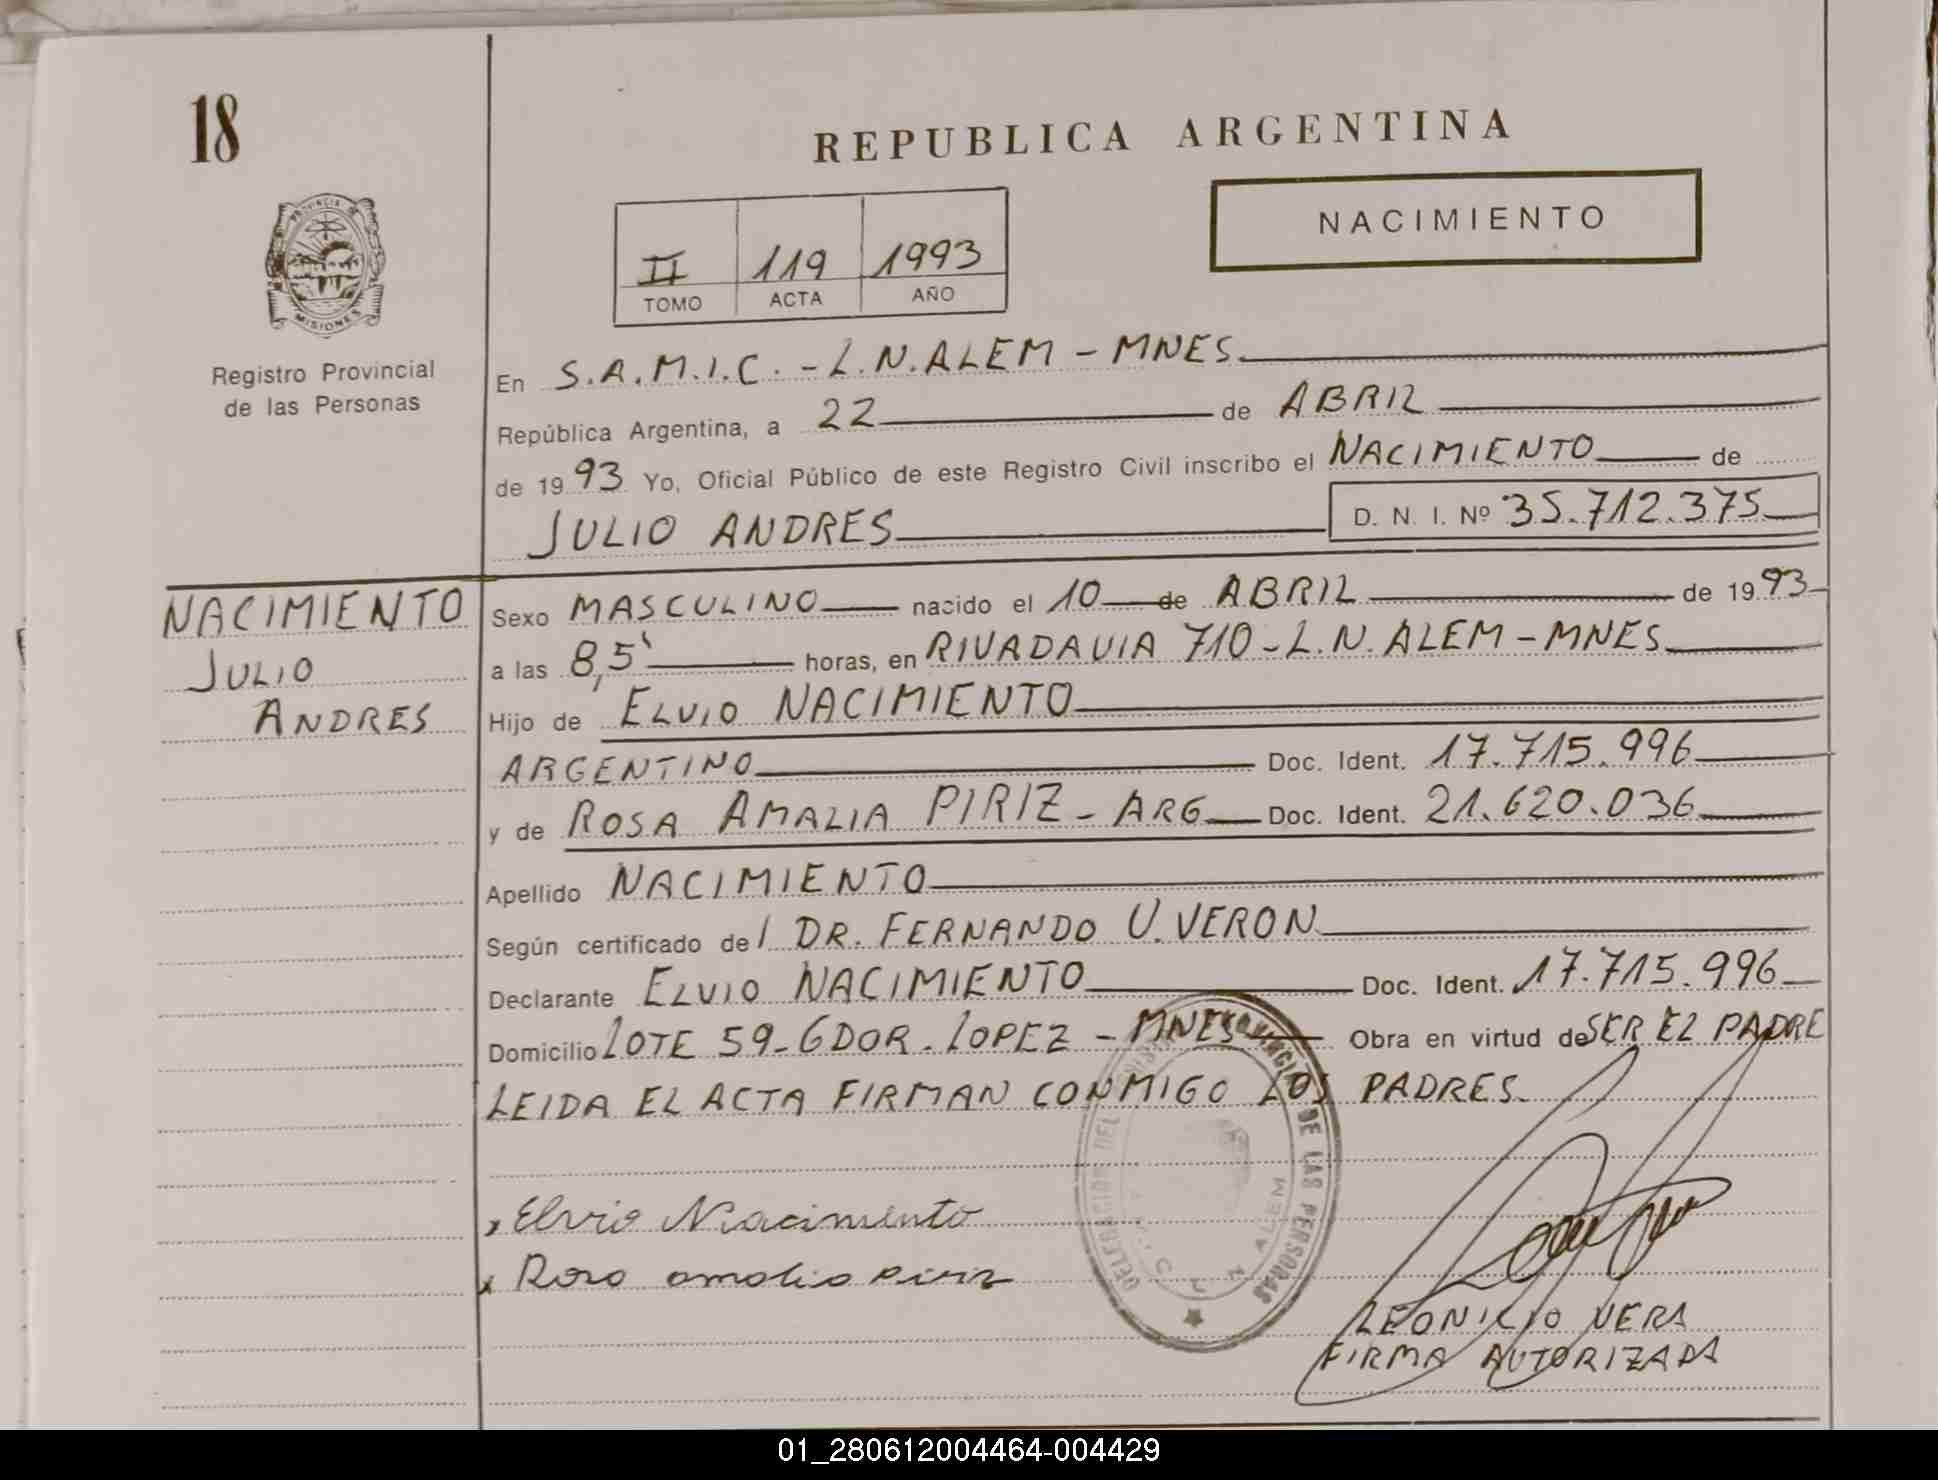 18
REPUBLICA ARGENTINA
NACIMIENTO
II 119 1993
TOMO ACTA AÑO
PROVINCIA DE
MISIONES
Registro Provincial
de las Personas
En S.A.M.I.C. - L.N.ALEM - MNES.
República Argentina, a 22 de ABRIL
de 1993 Yo, Oficial Público de este Registro Civil inscribo el NACIMIENTO de
JULIO ANDRES D. N. I. Nº 35.712.375
NACIMIENTO
JULIO
ANDRES
Sexo MASCULINO nacido el 10 de ABRIL de 1993
a las 8,5' horas, en RIVADAVIA 710 - L.N. ALEM - MNES
Hijo de ELVIO NACIMIENTO
ARGENTINO Doc. Ident. 17.715.996
y de ROSA AMALIA PIRIZ - ARG Doc. Ident. 21.620.036
Apellido NACIMIENTO
Según certificado del DR. FERNANDO U. VERON
Declarante ELVIO NACIMIENTO Doc. Ident. 17.715.996
Domicilio LOTE 59 - GDOR. LOPEZ - MNES Obra en virtud de SER EL PADRE
LEIDA EL ACTA FIRMAN CONMIGO LOS PADRES.
DE LAS PERSONAS
ALEM
Elvio Nacimiento
Rosa amalia piriz
LEONICIO VERA
FIRMA AUTORIZADA
01_280612004464-004429